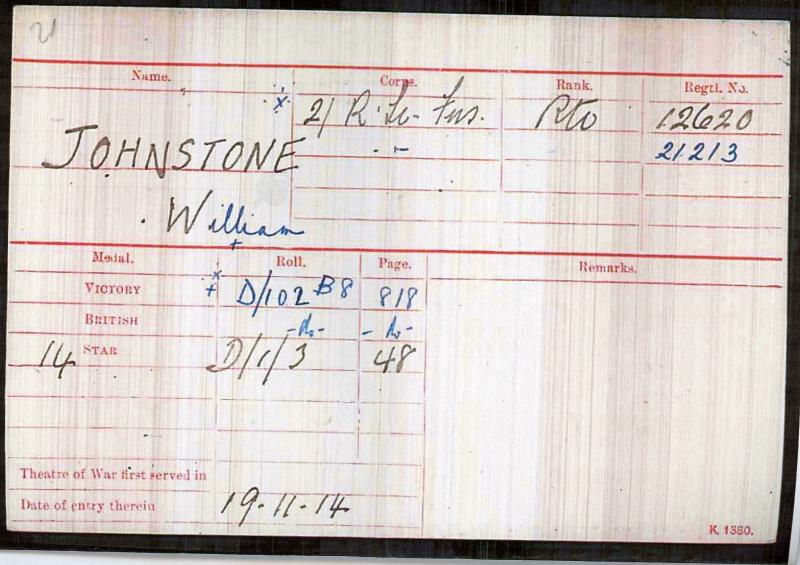 21
Name. Corps. Rank. Regtl. No.
x 2/ R. Sc. Fus. Pte 12620
JOHNSTONE -"- 21213
William
+
Medal. Roll. Page. Remarks.
VICTORY x + D/102 B8 818
BRITISH -do- -do-
14 STAR D/1/3 48
Theatre of War first served in
Date of entry therein 19-11-14
K. 1380.